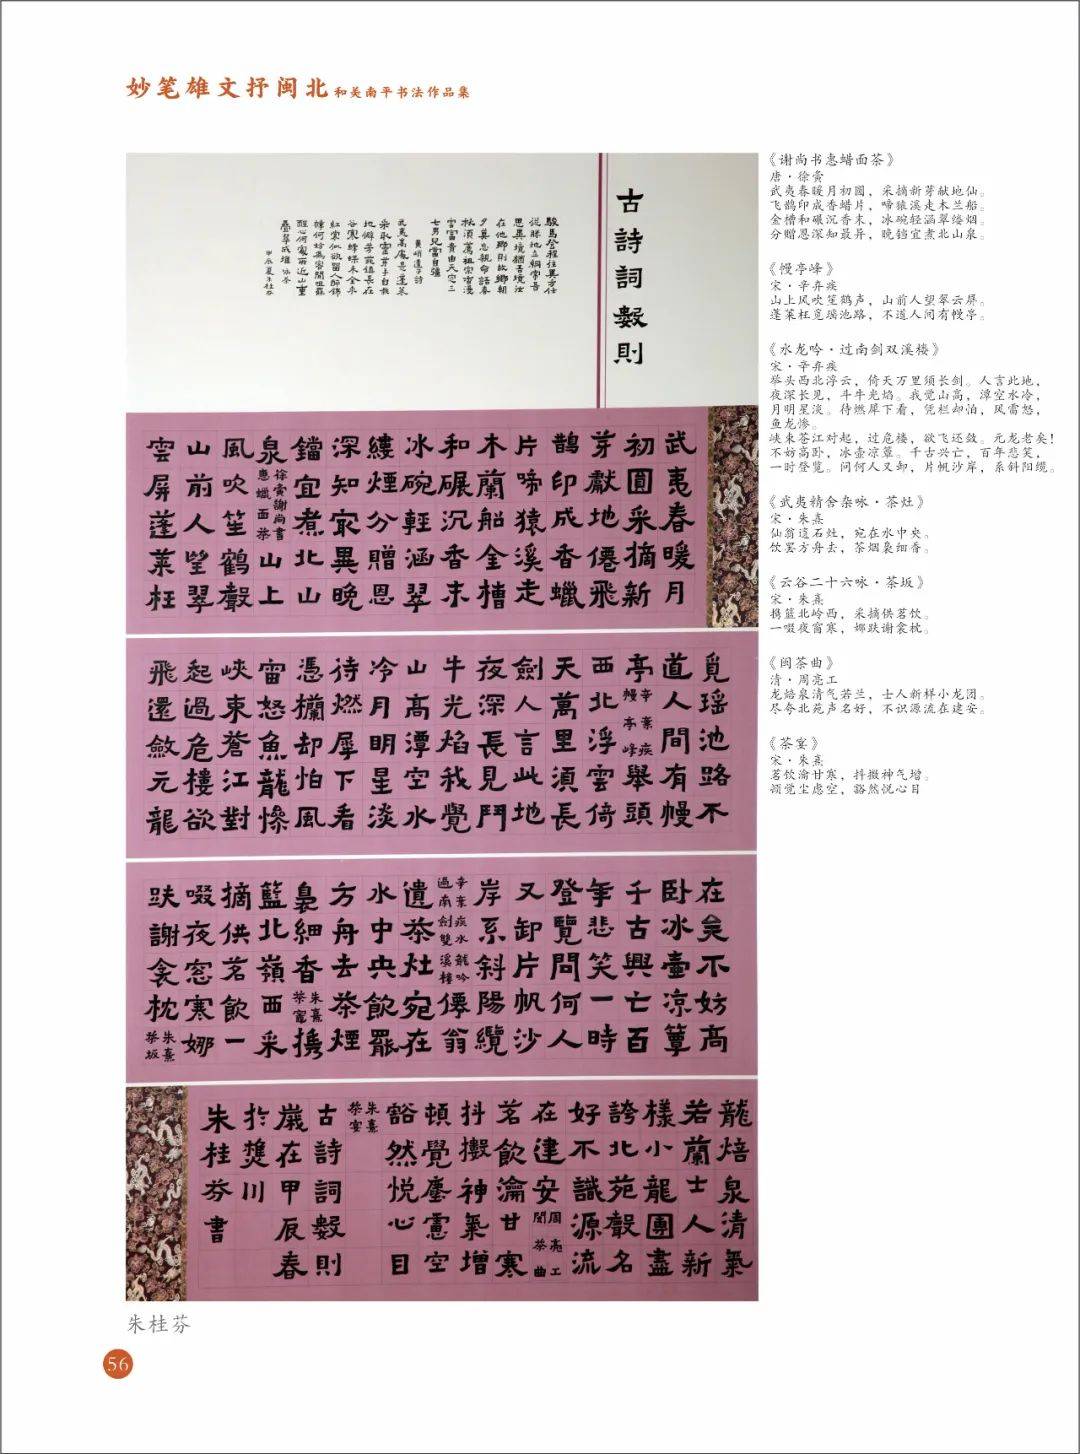 妙笔雄文抒闽北 和美南平书法作品集
古詩詞數則
駿馬登程往異方任
從勝地立綱常吾
思異境猶吾境汝
在他鄉則故鄉朝
夕莫忘親命語春
秋須薦祖宗香漫
云富貴由天定三
七男兒當自強
黃峭遣子詩
武夷高處是蓬萊
采取靈芽手自栽
地僻芳菲鎮長在
谷寒蜂蝶未全來
紅裳似欲留人醉錦
幛何妨為客開咀罷
醒心何處所近山重
疊翠成堆 詠茶
甲辰夏朱桂芬
武夷春暖月
初圓采摘新
芽獻地僊飛
鵲印成香蠟
片啼猿溪走
木蘭船金槽
和碾沉香末
冰碗輕涵翠
縷煙分贈恩
深知冣異晚
鐺宜煮北山
泉 徐夤謝尚書惠蠟面茶 山上
風吹笙鶴聲
山前人望翠
雲屏蓬萊枉
覓瑤池路不
道人間有幔
亭 辛棄疾幔亭峰 舉頭
西北浮雲倚
天萬里須長
劍人言此地
夜深長見鬥
牛光焰我覺
山高潭空水
冷月明星淡
待燃犀下看
憑欄却怕風
雷怒魚龍慘
峽束蒼江對
起過危樓欲
飛還斂元龍
在矣不妨高
卧冰壺凉簟
千古興亡百
年悲笑一時
登覽問何人
又卸片帆沙
岸系斜陽纜
辛棄疾水龍吟過南劍雙溪樓 僊翁
遺茶灶宛在
水中央飲罷
方舟去茶煙
裊細香 朱熹茶竈 攜
籃北嶺西采
摘供茗飲一
啜夜窓寒娜
趺謝衾枕 朱熹茶坂
龍焙泉清氣
若蘭士人新
樣小龍團盡
誇北苑聲名
好不識源流
在建安 周亮工閩茶曲
茗飲瀹甘寒
抖擻神氣增
頓覺塵慮空
豁然悅心目
朱熹茶宴
古詩詞數則
歲在甲辰春
於樊川
朱桂芬書
《谢尚书惠蜡面茶》
唐·徐夤
武夷春暖月初圆，采摘新芽献地仙。
飞鹊印成香蜡片，啼猿溪走木兰船。
金槽和碾沉香末，冰碗轻涵翠缕烟。
分赠恩深知最异，晚铛宜煮北山泉。
《幔亭峰》
宋·辛弃疾
山上风吹笙鹤声，山前人望翠云屏。
蓬莱枉觅瑶池路，不道人间有幔亭。
《水龙吟·过南剑双溪楼》
宋·辛弃疾
举头西北浮云，倚天万里须长剑。人言此地，
夜深长见，斗牛光焰。我觉山高，潭空水冷，
月明星淡。待燃犀下看，凭栏却怕，风雷怒，
鱼龙惨。
峡束苍江对起，过危楼，欲飞还敛。元龙老矣！
不妨高卧，冰壶凉簟。千古兴亡，百年悲笑，
一时登览。问何人又卸，片帆沙岸，系斜阳缆。
《武夷精舍杂咏·茶灶》
宋·朱熹
仙翁遗石灶，宛在水中央。
饮罢方舟去，茶烟袅细香。
《云谷二十六咏·茶坂》
宋·朱熹
携篮北岭西，采摘供茗饮。
一啜夜窗寒，娜趺谢衾枕。
《闽茶曲》
清·周亮工
龙焙泉清气若兰，士人新样小龙团。
尽夸北苑声名好，不识源流在建安。
《茶宴》
宋·朱熹
茗饮瀹甘寒，抖擞神气增。
顿觉尘虑空，豁然悦心目
朱桂芬
56